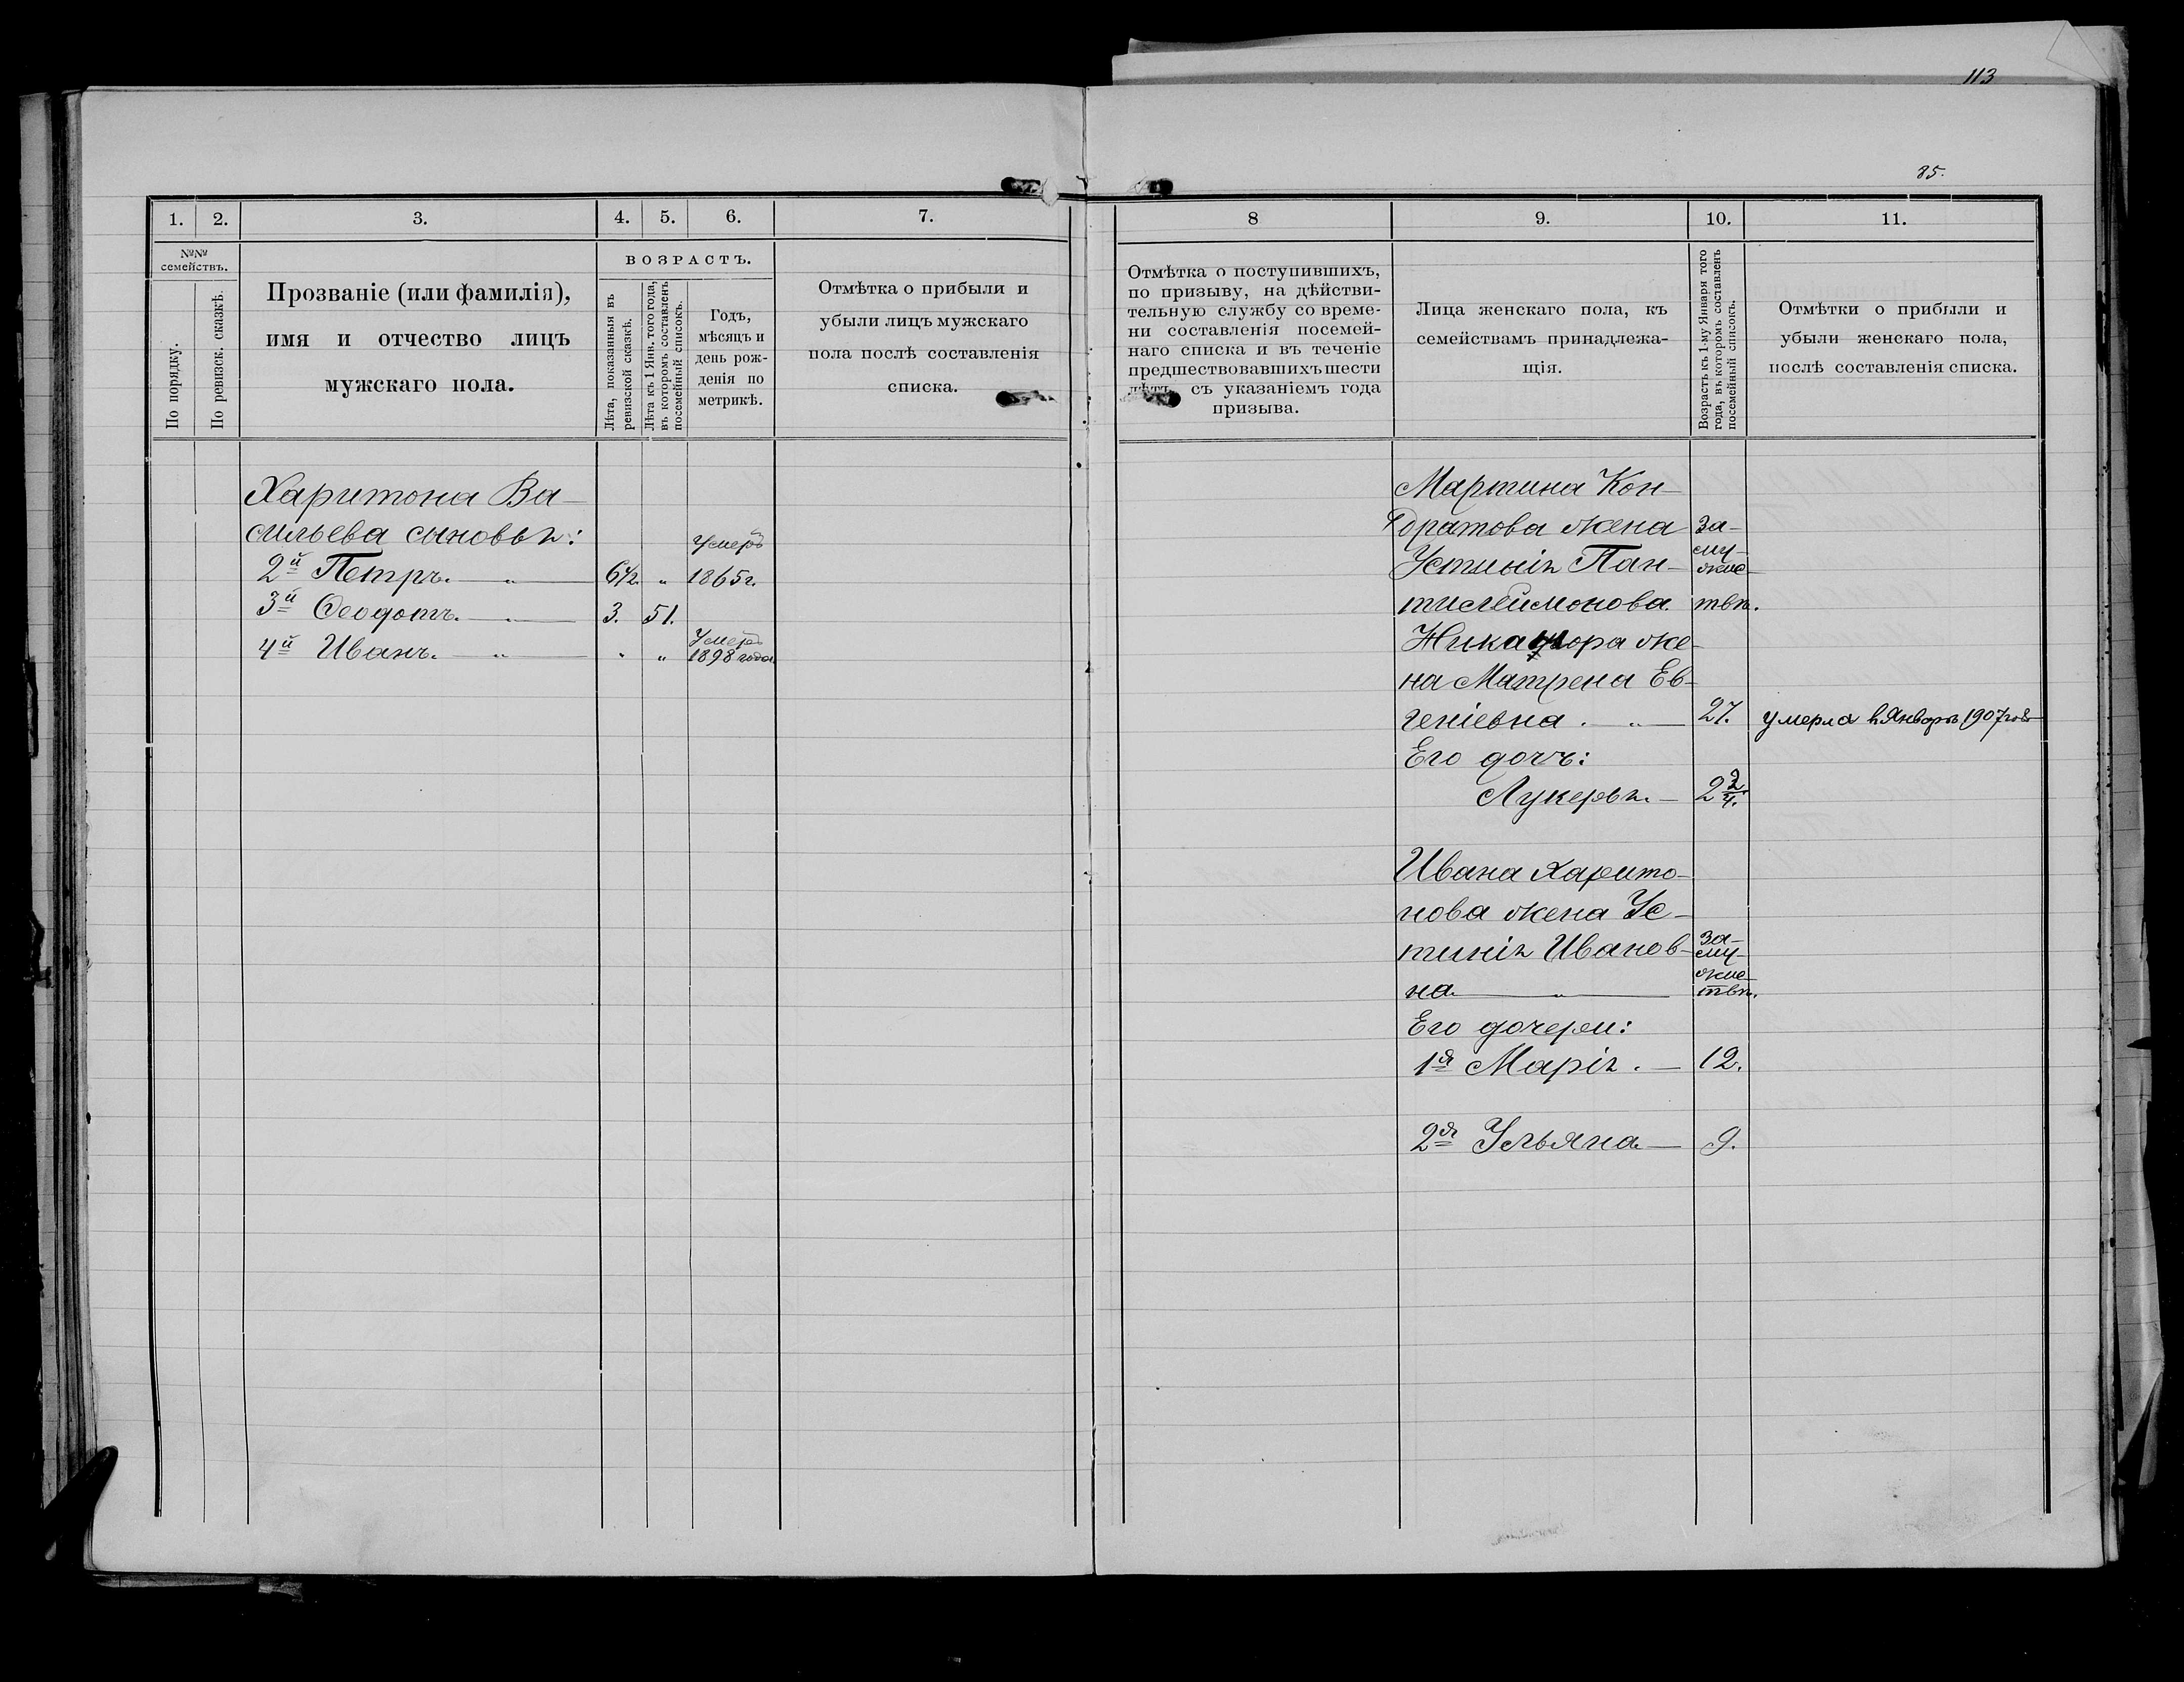 113
85.
1. 2. 3. 4. 5. 6. 7.
№№ семействъ.
По порядку.
По ревизск. сказкѣ.
Прозваніе (или фамилія),
имя и отчество лицъ
мужскаго пола.
ВОЗРАСТЪ.
Лѣта, показанныя въ
ревизской сказкѣ.
Лѣта къ 1 Янв. того года,
въ которомъ составленъ
посемейный списокъ.
Годъ,
мѣсяцъ и
день рож-
денія по
метрикѣ.
Отмѣтка о прибыли и
убыли лицъ мужскаго
пола послѣ составленія
списка.
Харитона Ва-
сильева сыновья:
Умеръ
2й Петръ. — „ — 6½ „ 1865г.
3й Ѳеодотъ. — „ — 3. 51.
Умеръ
4й Иванъ. — „ — „ „ 1898 года
8 9. 10. 11.
Отмѣтка о поступившихъ,
по призыву, на дѣйстви-
тельную службу со време-
ни составленія посемей-
наго списка и въ теченіе
предшествовавшихъ шести
лѣтъ, съ указаніемъ года
призыва.
Лица женскаго пола, къ
семействамъ принадлежа-
щія.
Возрастъ къ 1-му Января того
года, въ которомъ составленъ
посемейный списокъ.
Отмѣтки о прибыли и
убыли женскаго пола,
послѣ составленія списка.
Мартина Кон-
дратова жена за-
му-
Устинія Пан- жис-
тилеймонова. твѣ.
Никанора же-
на Матрена Ев-
геніевна. — „ — 27. умерла в Январѣ 1907 года
Его дочь:
Лукерья. — 2¾.
Ивана Харито-
нова жена Ус-
тинія Иванов- за-
му-
жис-
на — „ — твѣ.
Его дочери:
1я Марія. — 12.
2я Ульяна — 9.